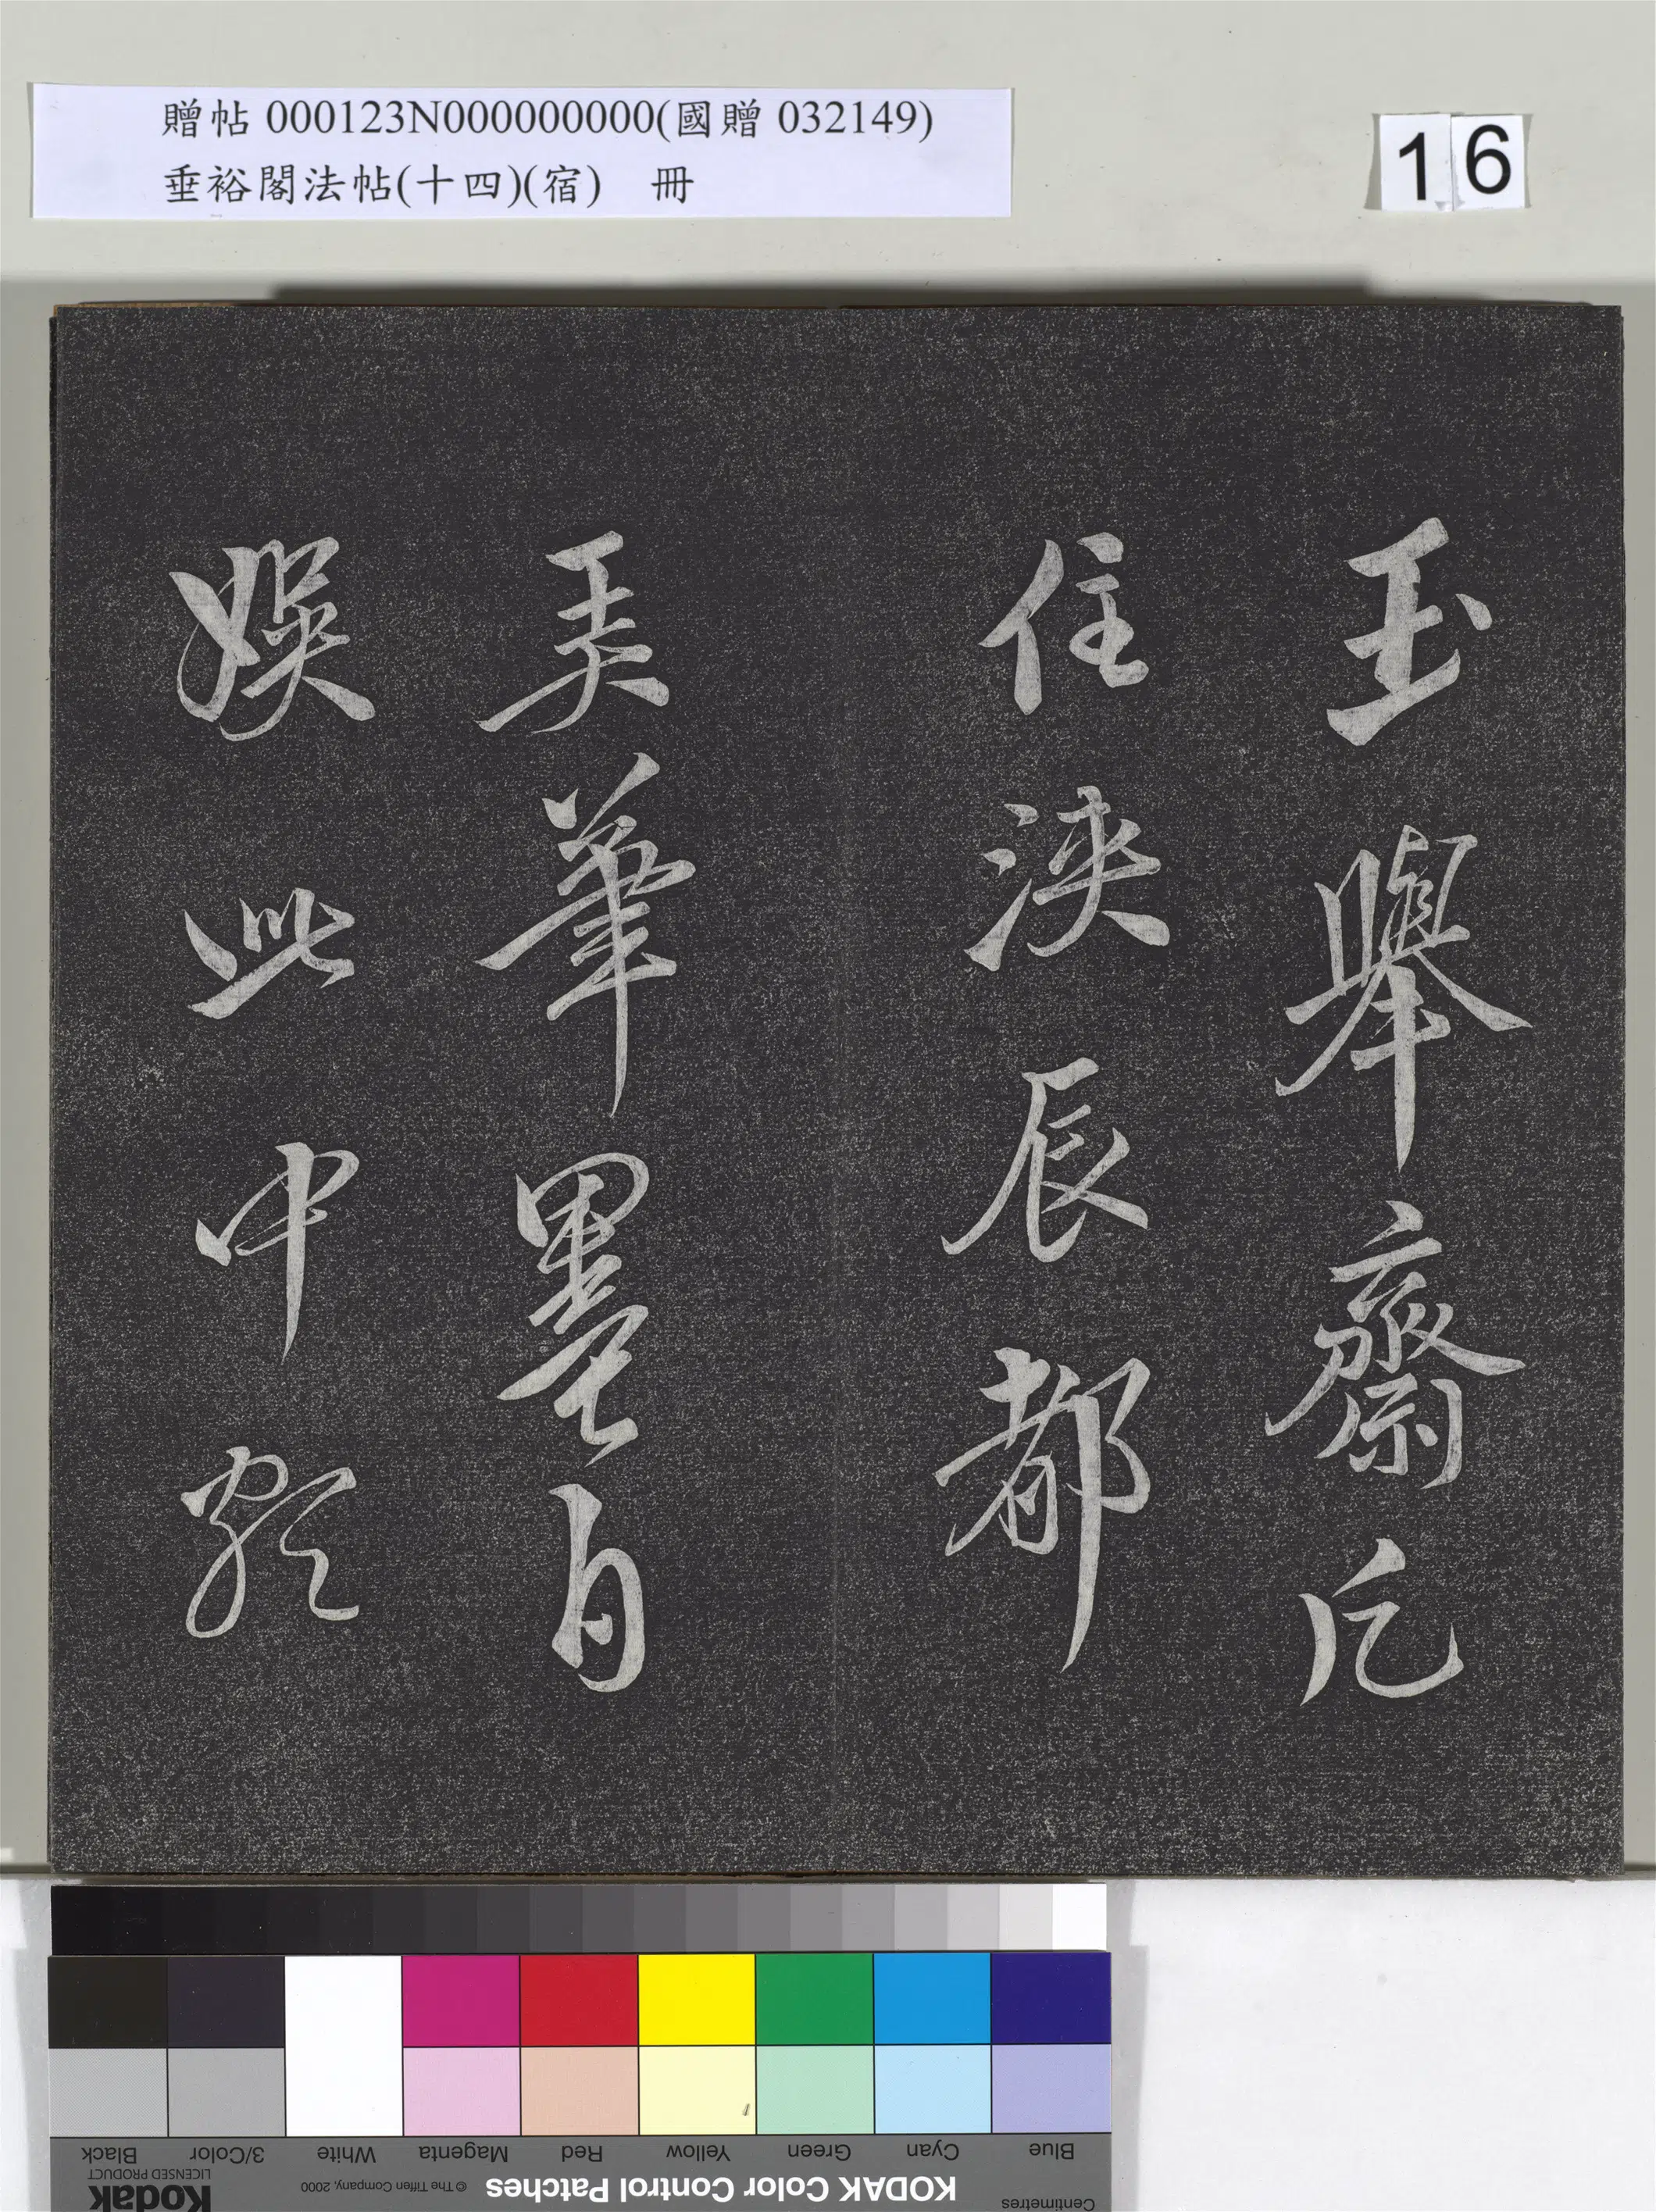 贈帖 000123N000000000(國贈 032149)
垂裕閣法帖(十四)(宿) 冊
16
玉舉齋凡
住浹辰都
弄筆墨自
娛此中頗
Blue Cyan Green Yellow Red Magenta White 3/Color Black
Centimetres
KODAK Color Control Patches
© The Tiffen Company, 2000
Kodak
LICENSED PRODUCT